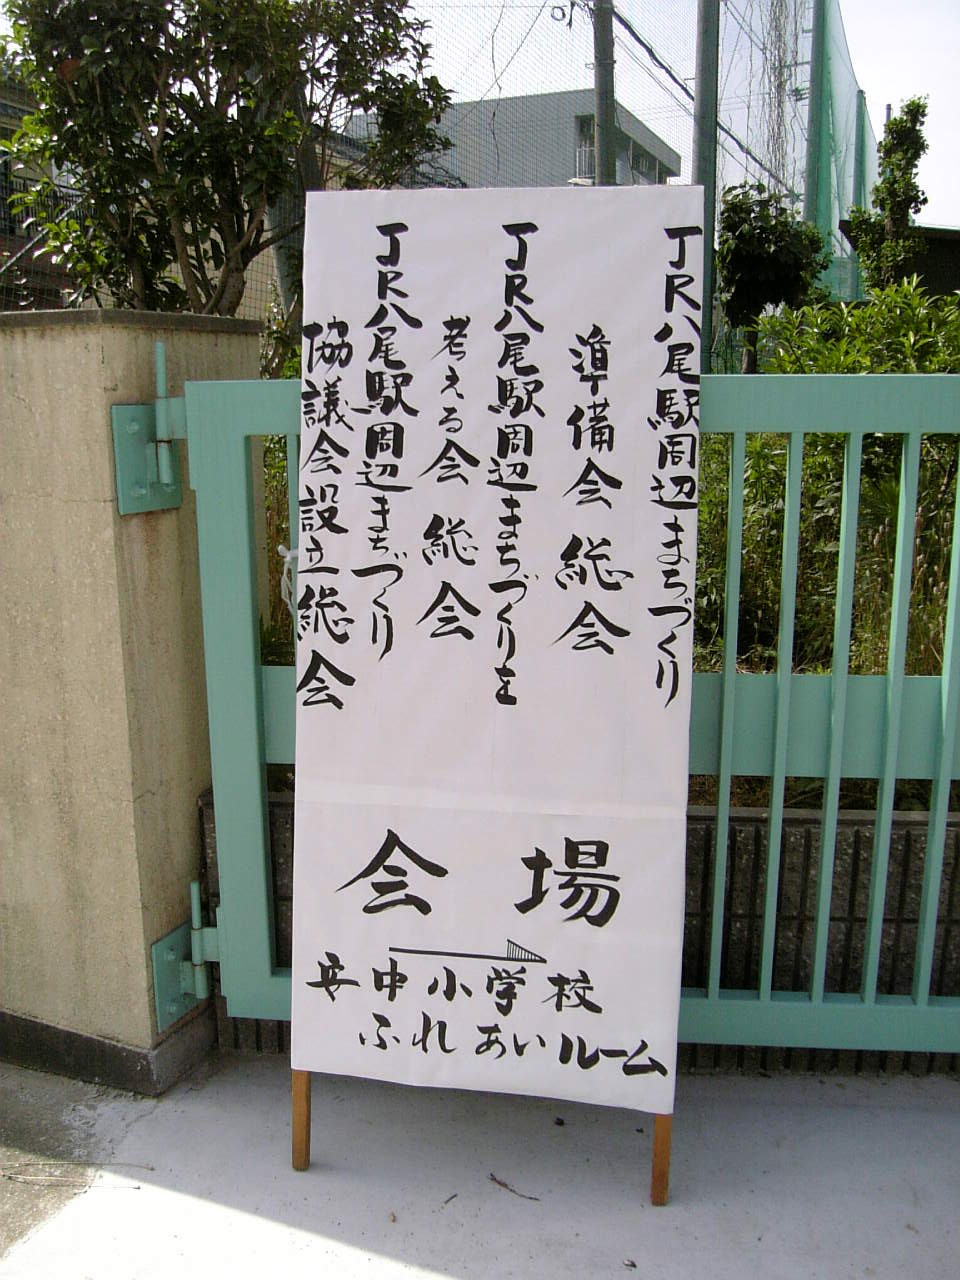 JR八尾駅周辺まちづくり
準備会 総会
JR八尾駅周辺まちづくりを
考える会 総会
JR八尾駅周辺まちづくり
協議会設立総会
会 場
安中小学校
ふれあいルーム